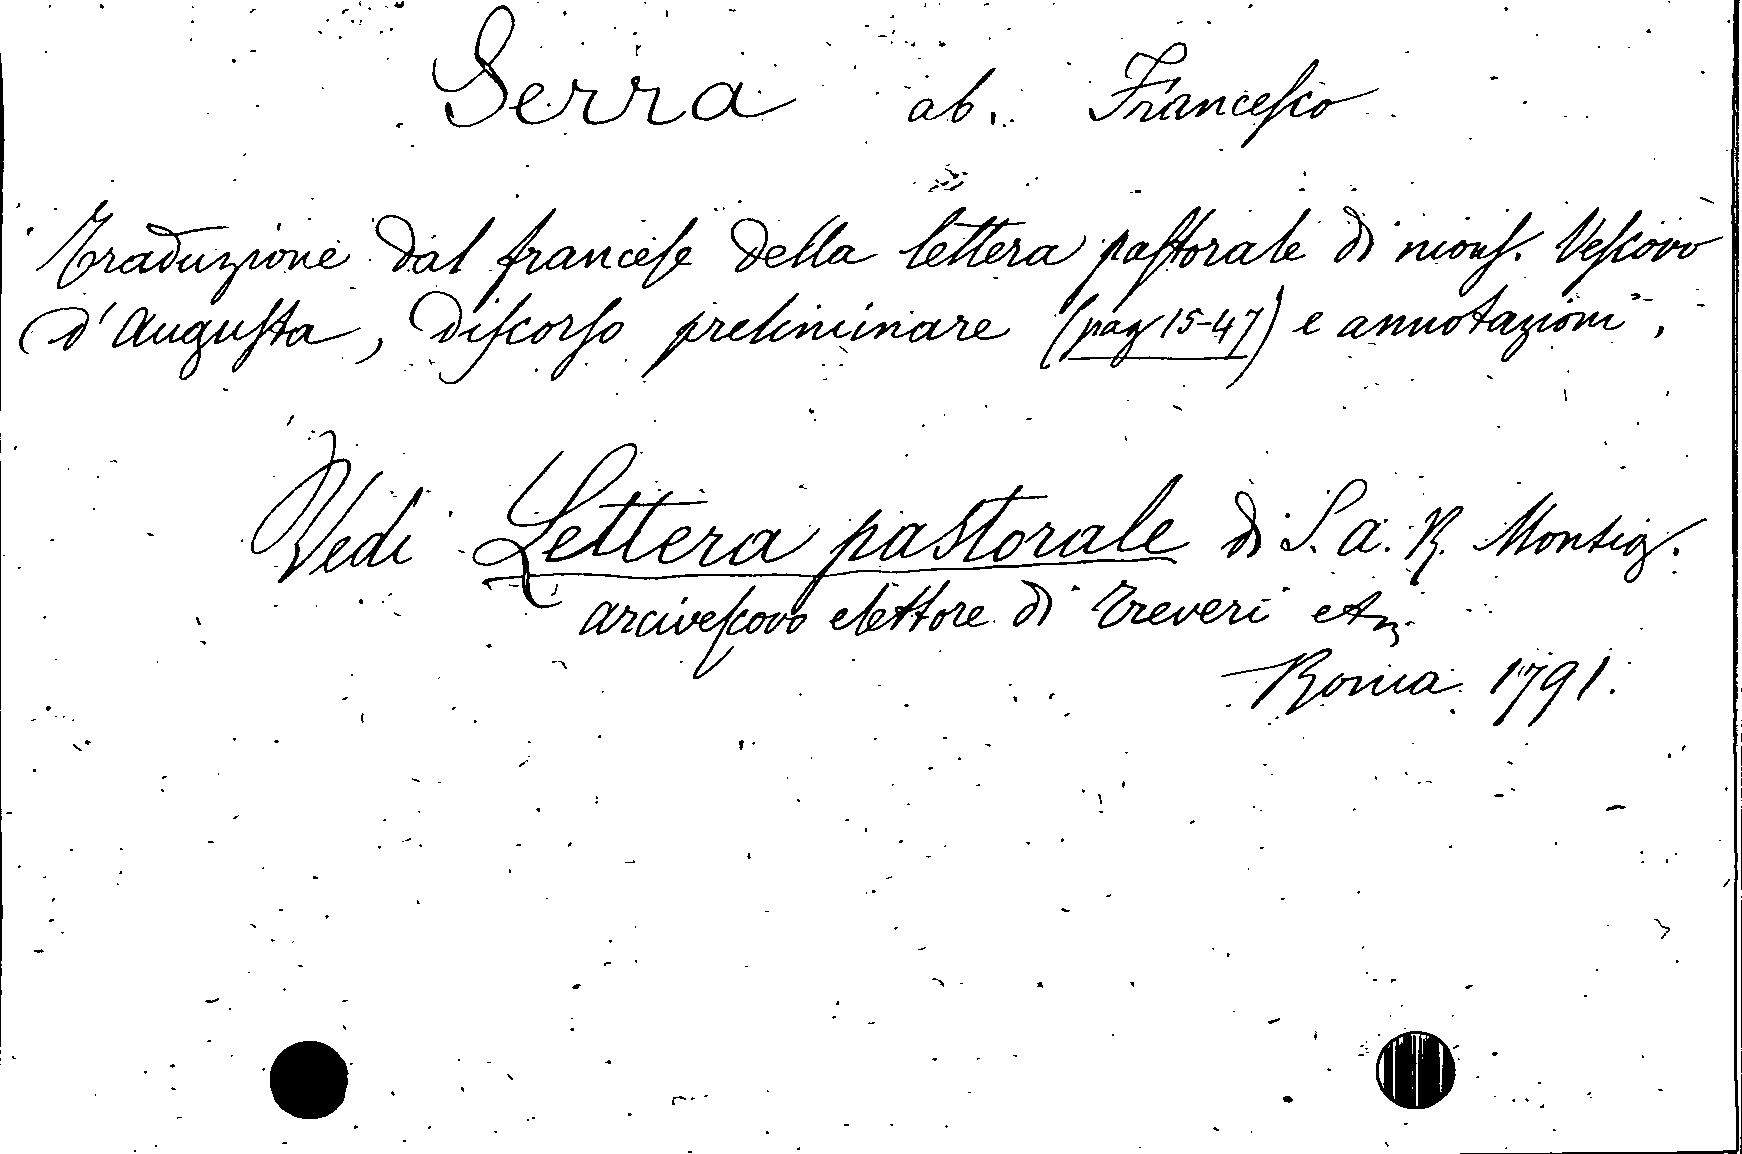 Serra ab. Francesco
Traduzione dal francese della lettera pastorale di mons. Vescovo
d'Augusta, discorso preliminare (pag 15-47) e annotazioni.
Vedi Lettera pastorale di S. A. R. Monsig.
arcivescovo elettore di Treveri etc.
Roma 1791.